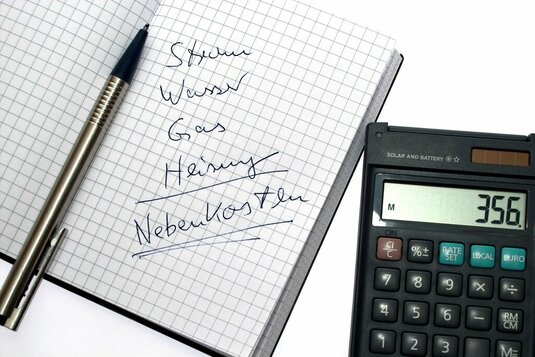 Strom
Wasser
Gas
Heizung
Nebenkosten
SOLAR AND BATTERY
M 356.
ON
C/C %± RATE SET LOCAL EURO
7 8 9 × ÷
4 5 6 − RM CM
1 2 3 M=